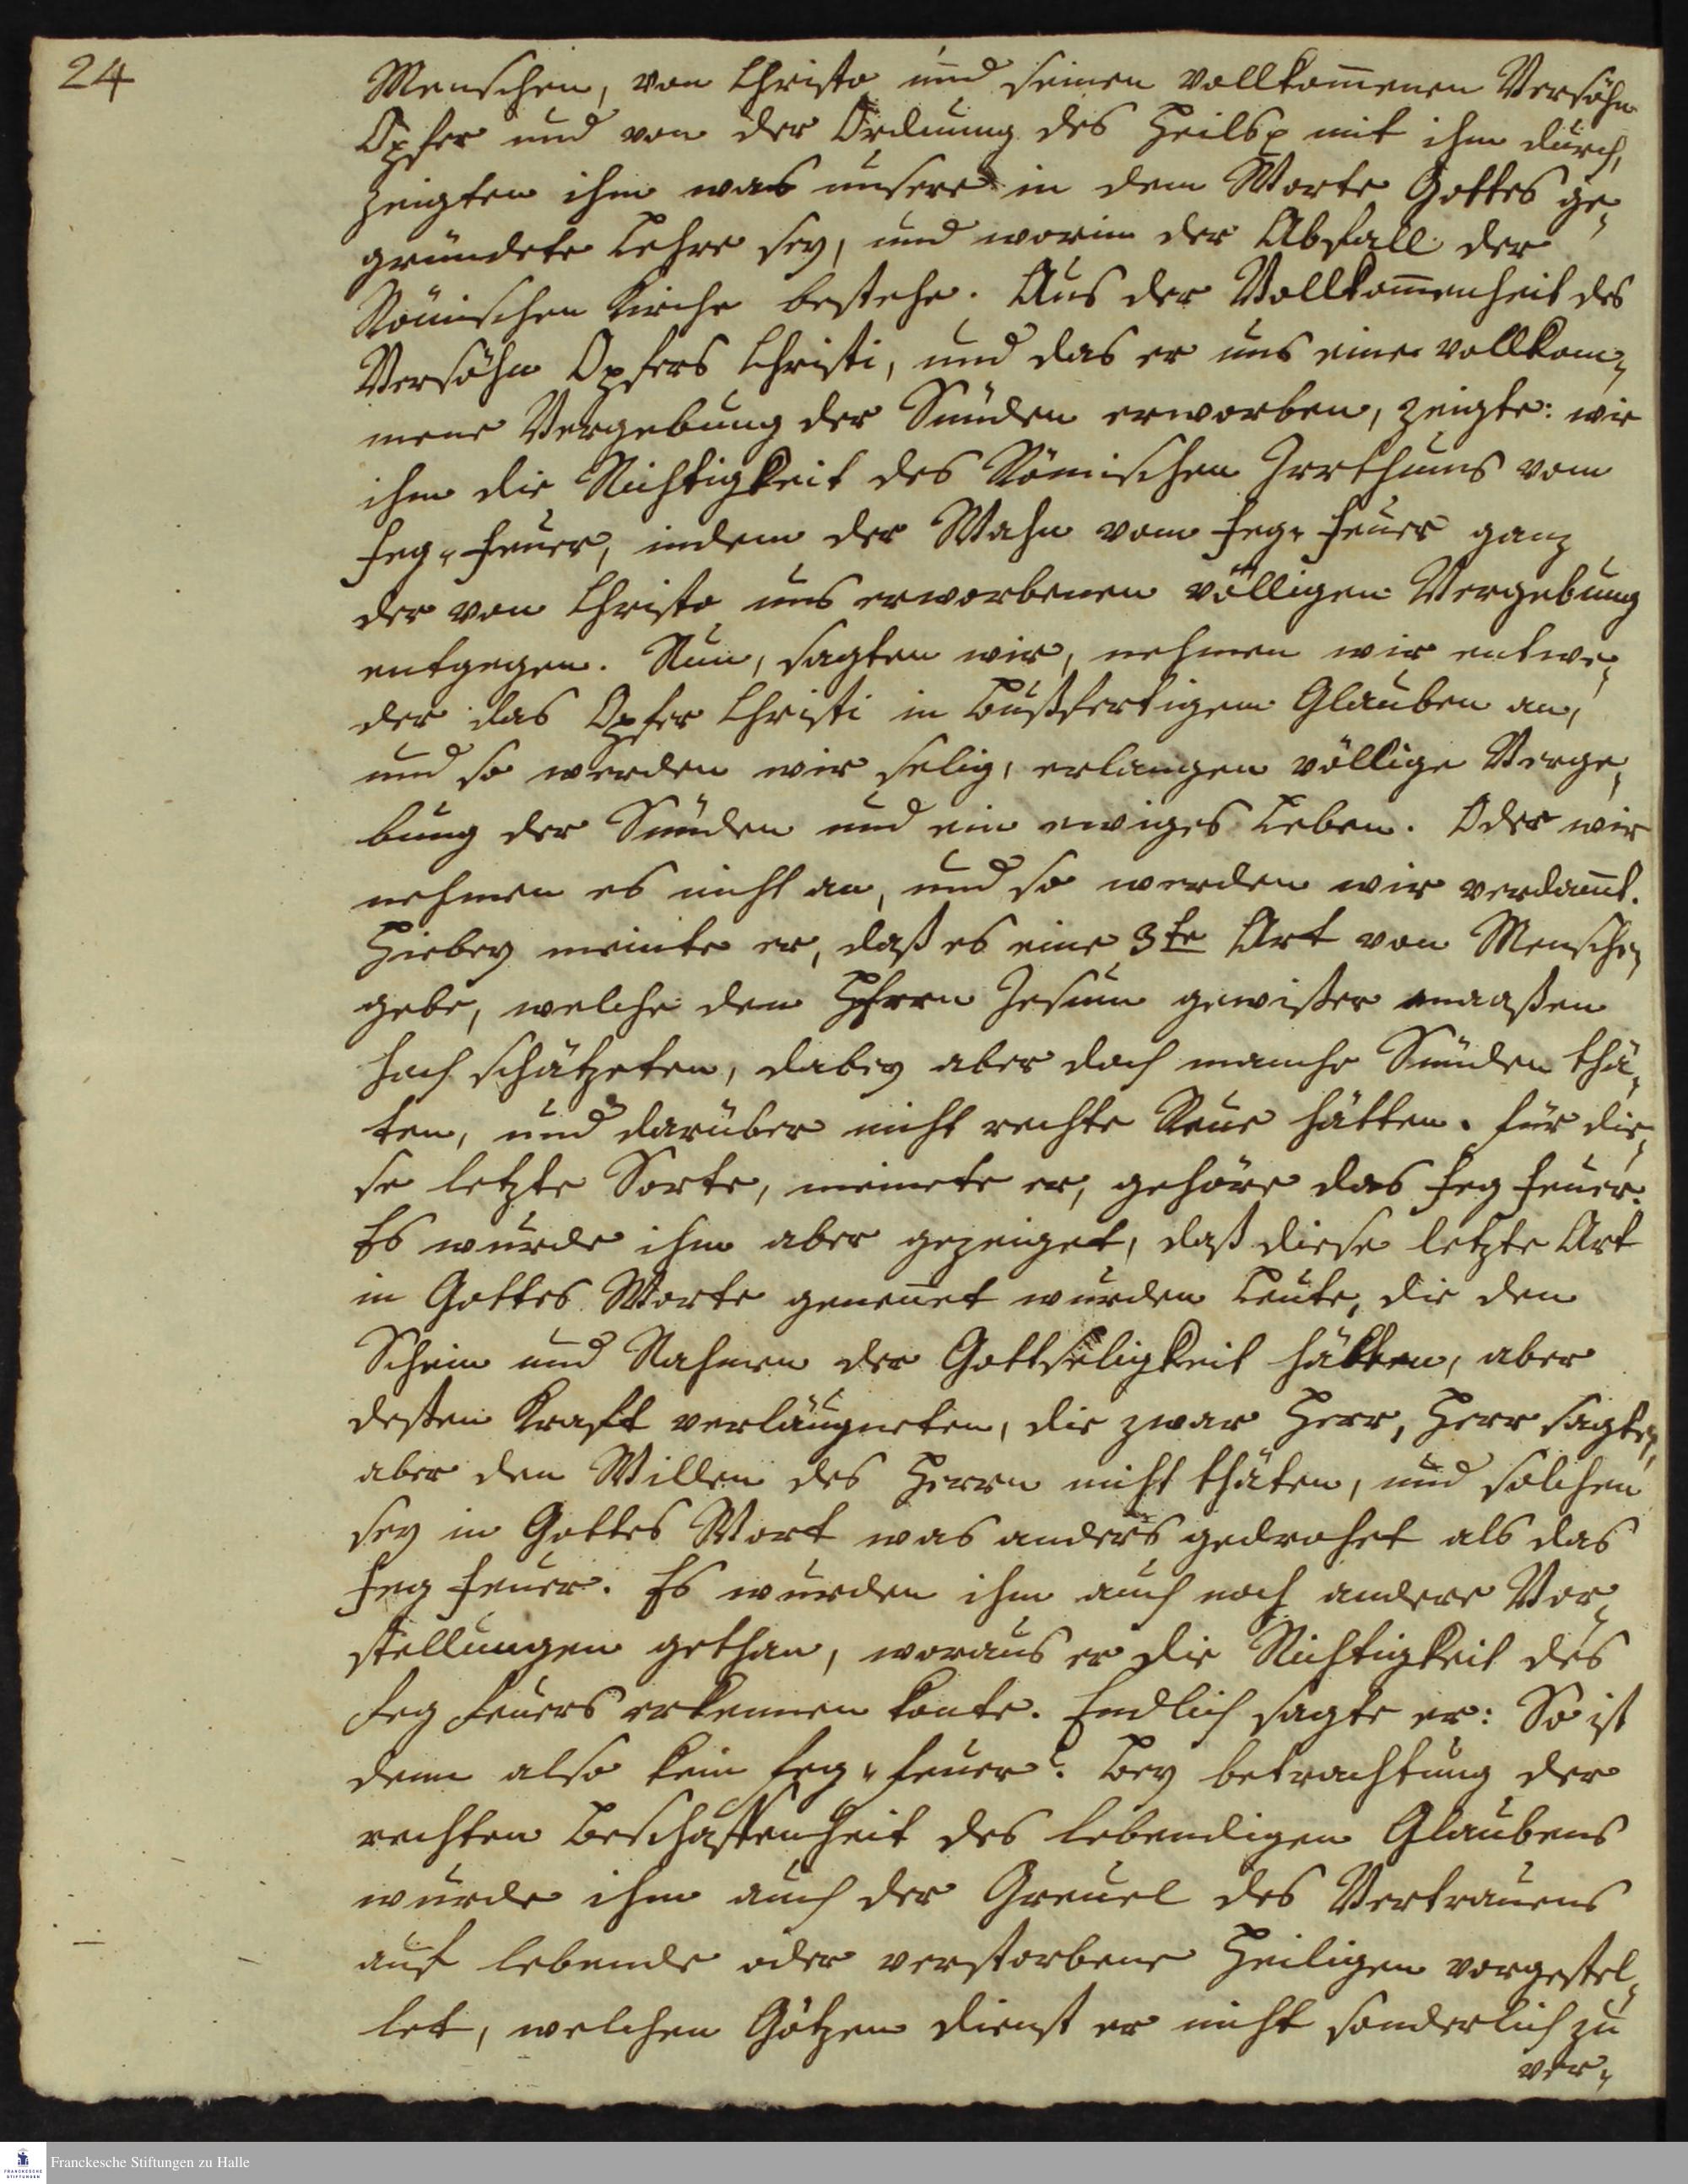 24
Menschen, von Christo und seinen vollkom̄enen Versöhn
Opfer und von der Ordnung des Heils p mit ihm durch,
zeigten ihm was unsere in dem Worte Gottes ge¬
gründete Lehre sey, und worin der Abfall der
Römischen Kirche bestehe. Aus der Vollkom̄enheit des
Versöhn Opfers Christi, und das er uns eine vollkom¬
mene Vergebung der Sünden erworben, zeigte: wir
ihm die Nichtigkeit des Römischen Irrthums vom
Feg-Feuer, indem der Wahn vom Feg-Feuer ganz
der von Christo uns erworbenen völligen Vergebung
entgegen. Nun, sagten wir, nehmen wir entwe¬
der das Opfer Christi in bußfertigem Glauben an,
und so werden wir selig, erlangen völlige Verge¬
bung der Sünden und ein ewiges Leben. Oder wir
nehmen es nicht an, und so werden wir verdam̄t.
Hiebey meinte er, daß es eine 3te Art von Menschen
gebe, welche den HErrn Jesum gewißer maaßen
hoch schätzeten, dabey aber doch manche Sünden thä¬
ten, und darüber nicht rechte Reue hätten. Für die¬
se letzte Sorte, meinete er, gehöre das Feg Feuer.
Es wurde ihm aber gezeiget, daß diese letzte Art
in Gottes Worte genen̄et wurden Leute, die den
Schein und Nahmen der Gottseligkeit hätten, aber
deßen Kraft verläugneten, die zwar Herr, Herr sagten,
aber den Willen des Herrn nicht thäten, und solchen
sey in Gottes Wort was anders gedrohet als das
Feg Feuer. Es wurden ihm auch noch andere Vor¬
stellungen gethan, woraus er die Nichtigkeit des
Feg Feuers erkennen konte. Endlich sagte er: So ist
denn also kein Feg-Feuer? Bey betrachtung der
rechten Beschaffenheit des lebendigen Glaubens
wurde ihm auch der Greuel des Vertrauens
auf lebende oder verstorbene Heiligen vorgestel¬
let, welchen Götzen dienst er nicht sonderlich zu
ver¬
FRANCKESCHE
STIFTUNGEN
Franckesche Stiftungen zu Halle